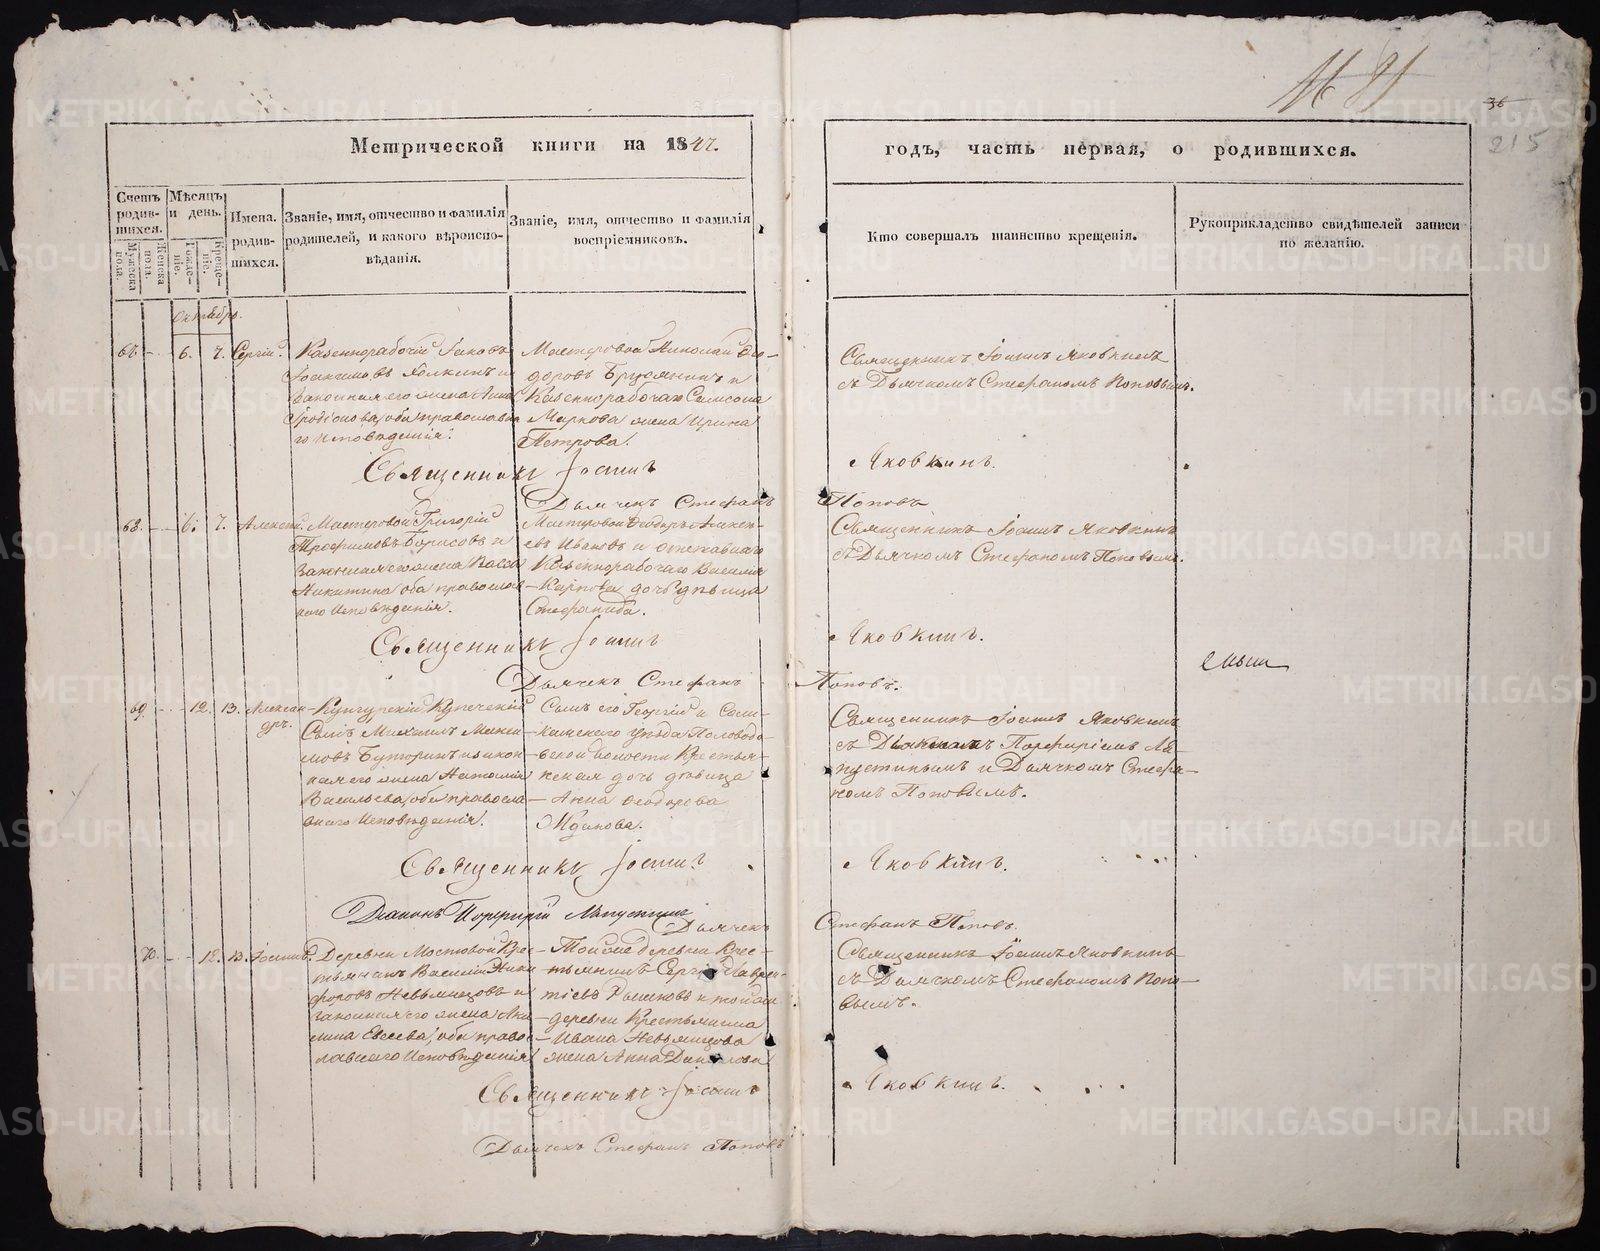 36
215
Метрической книги на 1847.
годъ, часть первая, о родившихся.
Счетъ родившихся.
Мужеска пола.
Женска пола.
Мѣсяцъ и день.
Рожденіе.
Крещеніе.
Имена родившихся.
Званіе, имя, отчество и фамилія родителей, и какого вѣроисповѣданія.
Званіе, имя, отчество и фамилія воспріемниковъ.
Кто совершалъ таинство крещенія.
Рукоприкладство свидѣтелей записи по желанію.
Октябрь.
67. 6. 7. Сергій.
Казеннорабочій Іаковъ
Іоакимовъ и
законная его жена Анна
оба православна
го исповѣданія.
Мастеровой Николай Ѳео-
доровъ и
Казеннорабочаго Самсона
Маркова жена Ирина
Петрова.
Священникъ Іоаннъ Яковкинъ
съ Дьячкомъ Стефаномъ Поповымъ.
Священникъ Іоаннъ Яковкинъ.
Дьячекъ Стефанъ Поповъ
68. 6. 7. Алексій.
Мастеровой Григорій
Трофимовъ Борисовъ и
законная его жена Васса
Никитина оба православ
наго исповѣданія.
Мастеровой Ѳеодоръ
Ивановъ и
Казеннорабочаго Василія
Карпова дочь дѣвица
Стефанида.
Священникъ Іоаннъ Яковкинъ
съ Дьячкомъ Стефаномъ Поповымъ.
Священникъ Іоаннъ Яковкинъ.
Дьячекъ Стефанъ Поповъ.
69. 12. 13. Александръ.
Кунгурскій Купеческій
Сынъ Михаилъ
и закон-
ная его жена Наталія
Васильева, оба правосла-
внаго исповѣданія.
Сынъ его Георгій и Соли-
камскаго уѣзда Половодо-
вской волости Крестьян-
ская дочь дѣвица
Анна Ѳеодорова
Жданова.
Священникъ Іоаннъ Яковкинъ
съ Діакономъ Порфиріемъ Ла-
пустинымъ и Дьячкомъ Стефа-
номъ Поповымъ.
Священникъ Іоаннъ Яковкинъ.
Діаконъ Порфирій Лапустинъ
Дьячекъ Стефанъ Поповъ.
70. 12. 13. Іоаннъ.
Деревни Мостовой Крес-
тьянинъ Василій Ники
форовъ Невьянцовъ и
законная его жена Аку
лина Евсеева, оба право-
славнаго исповѣданія.
Той же деревни Крес-
тьянинъ Сергій Лаврен-
тіевъ и той же
деревни Крестьянина
Ивана Невьянцова
жена Анна Данилова
Священникъ Іоаннъ Яковкинъ
съ Дьячкомъ Стефаномъ Попо-
вымъ.
Священникъ Іоаннъ Яковкинъ.
Дьячекъ Стефанъ Поповъ
METRIKI.GASO-URAL.RU